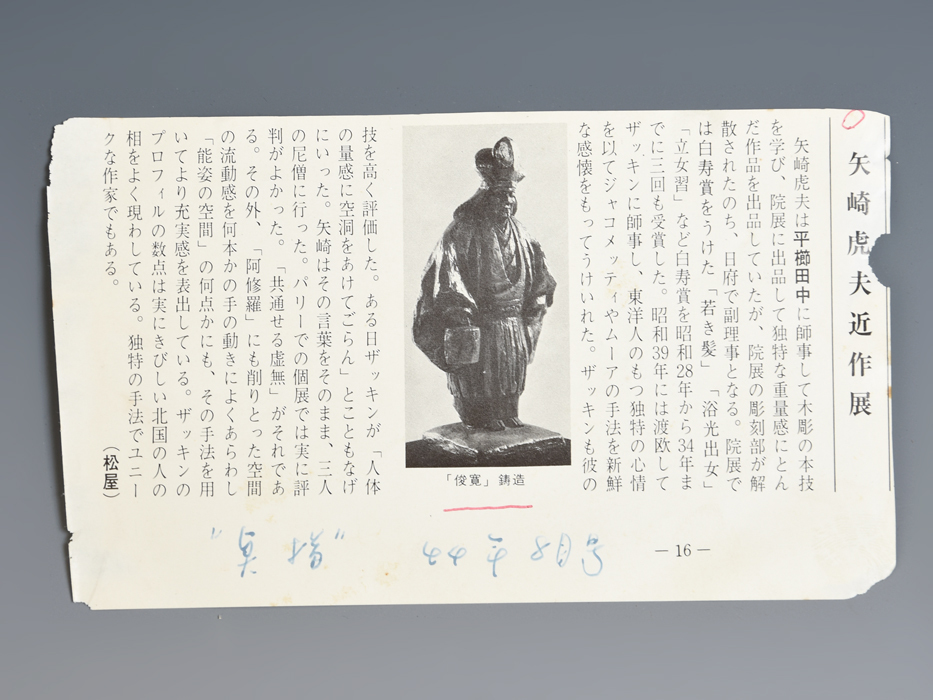 矢崎虎夫近作展
矢崎虎夫は平櫛田中に師事して木彫の本技
を学び、院展に出品して独特な重量感にとん
だ作品を出品していたが、院展の彫刻部が解
散されたのち、日府で副理事となる。院展で
は白寿賞をうけた「若き髪」「浴光出女」
「立女習」など白寿賞を昭和28年から34年ま
でに三回も受賞した。昭和39年には渡欧して
ザッキンに師事し、東洋人のもつ独特の心情
を以てジャコメッティやムーアの手法を新鮮
な感懐をもってうけいれた。ザッキンも彼の
「俊寛」鋳造
技を高く評価した。ある日ザッキンが「人体
の量感に空洞をあけてごらん」とこともなげ
にいった。矢崎はその言葉をそのまま、三人
の尼僧に行った。パリーでの個展では実に評
判がよかった。「共通せる虚無」がそれであ
る。その外、「阿修羅」にも削りとった空間
の流動感を何本かの手の動きによくあらわし
「能姿の空間」の何点かにも、その手法を用
いてより充実感を表出している。ザッキンの
プロフィルの数点は実にきびしい北国の人の
相をよく現わしている。独特の手法でユニー
クな作家でもある。
（松屋）
44年8月号
－16－